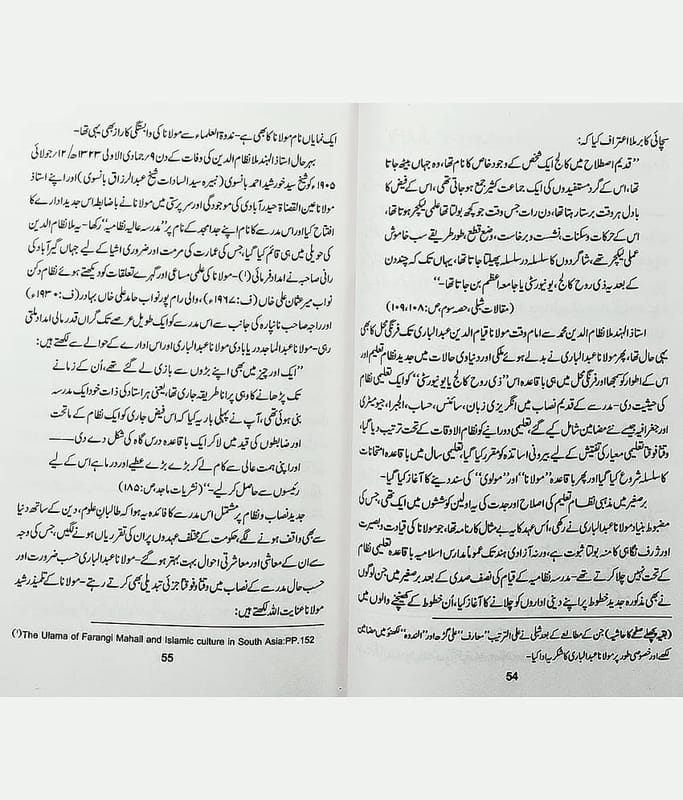 سچائی کا برملا اعتراف کیا کہ:
”قدیم اصطلاح میں کالج ایک شخص کے وجود خاص کا نام تھا، وہ جہاں بیٹھ جاتا
تھا، اس کے گرد مستفیدوں کی ایک جماعت کثیر جمع ہو جاتی تھی، اس کے فیض کا
بادل ہر وقت برستا رہتا تھا، دن رات جس وقت جو کچھ بولتا تھا علمی لیکچر ہوتا تھا،
اس کے حرکات وسکنات، نشست و برخاست، وضع قطع، طور طریقے سب خاموش
عملی لیکچر تھے، شاگردوں کا سلسلہ در سلسلہ پھیلتا جاتا تھا، یہاں تک کہ چند دن
کے بعد یہ ذی روح کالج، یونیورسٹی یا جامعہ اعظم بن جاتا تھا-“
(مقالات شبلی، حصہ سوم، ص: ۱۰۸، ۱۰۹)
استاذ الہند ملا نظام الدین محمد سے امام وقت مولانا قیام الدین عبدالباری تک فرنگی محل کا بھی
یہی حال تھا، پھر مولانا عبدالباری نے بدلے ہوئے ملکی اور دنیاوی حالات میں جدید نظام تعلیم اور
اس کے اطوار کو سمجھا اور فرنگی محل میں ہی باقاعدہ اس ”ذی روح کالج یا یونیورسٹی“ کو ایک تعلیمی نظام
کی حیثیت دی- مدرسے کے قدیم نصاب میں انگریزی زبان، سائنس، حساب، الجبرا، جیومیٹری
اور جغرافیہ جیسے نئے مضامین شامل کیے گئے، تعلیمی دورانے کو نظام الاوقات کے تحت ترتیب دیا گیا،
وقتاً فوقتاً تعلیمی معیار کی تفتیش کے لیے بیرونی اساتذہ کو مقرر کیا گیا، تعلیمی سال میں باقاعدہ امتحانات
کا سلسلہ شروع کیا گیا اور پھر باقاعدہ ”مولانا“ اور ”مولوی“ کی سند دینے کا آغاز کیا گیا-
برصغیر میں مذہبی نظام تعلیم کی اصلاح اور جدت کی یہ اولین کوششوں میں ایک تھی، جس کی
مضبوط بنیاد مولانا عبدالباری نے رکھی، اس عہد کا یہ بے مثال کارنامہ تھا، جو مولانا کی قیادت وبصیرت
اور ژرف نگاہی کا منہ بولتا ثبوت ہے، ورنہ آزادی ہند تک عموماً مدارس اسلامیہ باقاعدہ تعلیمی نظام
کے تحت نہیں چلا کرتے تھے- مدرسہ نظامیہ کے قیام کی نصف صدی کے بعد برصغیر میں جن لوگوں
نے بھی مذکورہ جدید خطوط پر اپنے دینی اداروں کو چلانے کا آغاز کیا، اُن خطوط کے کھینچنے والوں میں
(بقیہ پچھلے صفحے کا حاشیہ) جن کے مطالعے کے بعد شبلی نے علی الترتیب ”معارف“ علی گڑھ اور ”الندوہ“ لکھنؤ میں مضامین
لکھے اور خصوصی طور پر مولانا عبدالباری کا شکریہ ادا کیا-
54
ایک نمایاں نام مولانا کا بھی ہے- ندوۃ العلماء سے مولانا کی وابستگی کا راز بھی یہی تھا-
بہر حال استاذ الہند ملا نظام الدین کی وفات کے دن ۹؍ جمادی الاولی ۱۳۲۳ھ/ ۱۲؍ جولائی
۱۹۰۵ء کو شیخ سید خورشید احمد بانسوی (نبیرہ سید السادات شیخ عبدالرزاق بانسوی) اور اپنے استاذ
مولانا عین القضاۃ حیدرآبادی کی موجودگی اور سرپرستی میں مولانا نے باضابطہ اس جدید ادارے کا
افتتاح کیا اور اس مدرسے کا نام اپنے جد امجد کے نام پر ”مدرسہ عالیہ نظامیہ“ رکھا- یہ ملا نظام الدین
کی حویلی میں ہی قائم کیا گیا، جس کی عمارت کی مرمت اور ضروری اشیا کے لیے جہاں گیرآباد کی
رانی صاحبہ نے امداد فرمائی (۱)- مولانا کی علمی مساعی اور گہرے تعلقات کو دیکھتے ہوئے نظام دکن
نواب میر عثمان علی خاں (ف: ۱۹۶۷ء)، والی رام پور نواب حامد علی خاں بہادر (ف: ۱۹۳۰ء)
اور راجہ صاحب نانپارہ کی جانب سے اس مدرسے کو ایک طویل عرصے تک گراں قدر مالی امداد ملتی
رہی- مولانا عبد الماجد دریابادی مولانا عبدالباری اور اس ادارے کے حوالے سے لکھتے ہیں:
”ایک اور چیز میں بھی اپنے بڑوں سے بازی لے گئے تھے، اُن کے زمانے
تک پڑھانے کا وہی پرانا طریقہ جاری تھا، یعنی ہر استاد کی ذات خود ایک مدرسہ
بنی ہوئی تھی، آپ نے پہلی بار یہ کیا کہ اس فیض جاری کو ایک نظام کے ماتحت
اور ضابطوں کی قید میں لا کر ایک باقاعدہ درس گاہ کی شکل دے دی——
اور اپنی ہمت عالی سے کام لے کر بڑے بڑے عطیے اور درماہے اس کے لیے
رئیسوں سے حاصل کر لیے-“ (نشریات ماجد، ص: ۱۸۵)
جدید نصاب ونظام پر مشتمل اس مدرسے کا فائدہ یہ ہوا کہ طالبان علوم، دین کے ساتھ دنیا
سے بھی واقف ہونے لگے، حکومت کے مختلف عہدوں پر ان کی تقرریاں بھی ہونے لگیں، جس کی وجہ
سے ان کے معاشی اور معاشرتی احوال بہت بہتر ہو گئے- مولانا عبدالباری حسب ضرورت اور
حسب حال مدرسے کے نصاب میں وقتاً فوقتاً جزئی تبدیلی بھی کرتے رہے- مولانا کے تلمیذ رشید
مولانا عنایت اللہ لکھتے ہیں:
(۱)The Ulama of Farangi Mahall and Islamic culture in South Asia:PP.152
55